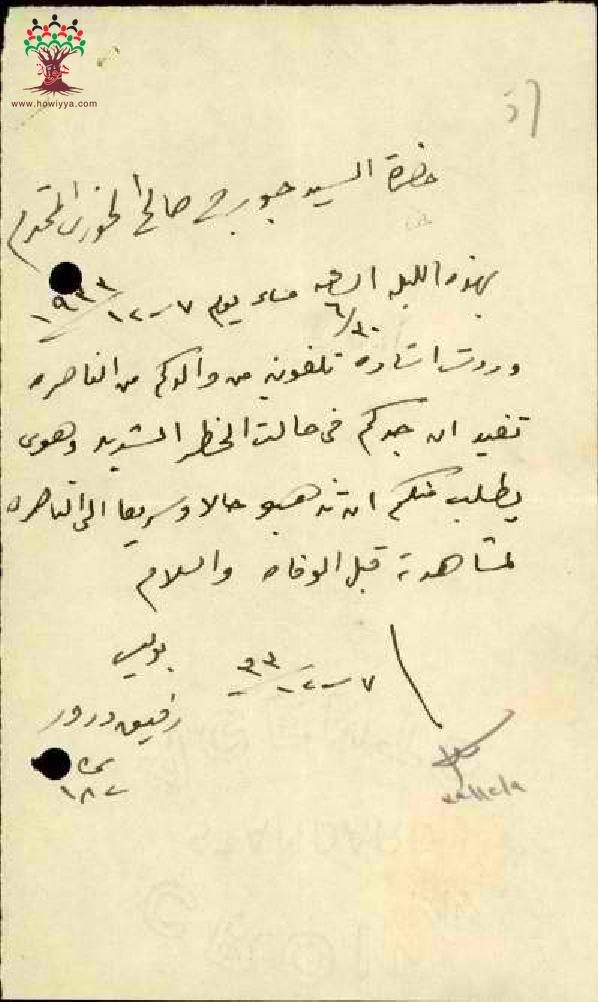 www.howiyya.com
حضرة السيد جورج صالح الخوري المحترم
بهذه الليله الساعه مساء يوم ٧-١٢-١٩٣٣
٦/٣٠
وردت اشاره تلفونيه من والدكم من الناصره
تفيد ان جدكم في حالت الخطر الشديد وهوى
يطلب منكم ان تذهبو حالا وسريعا الى الناصره
لمشاهدته قبل الوفاه والسلام
بوليس
٧-١٢-٩٣٣
رفيق درور
١٨٢